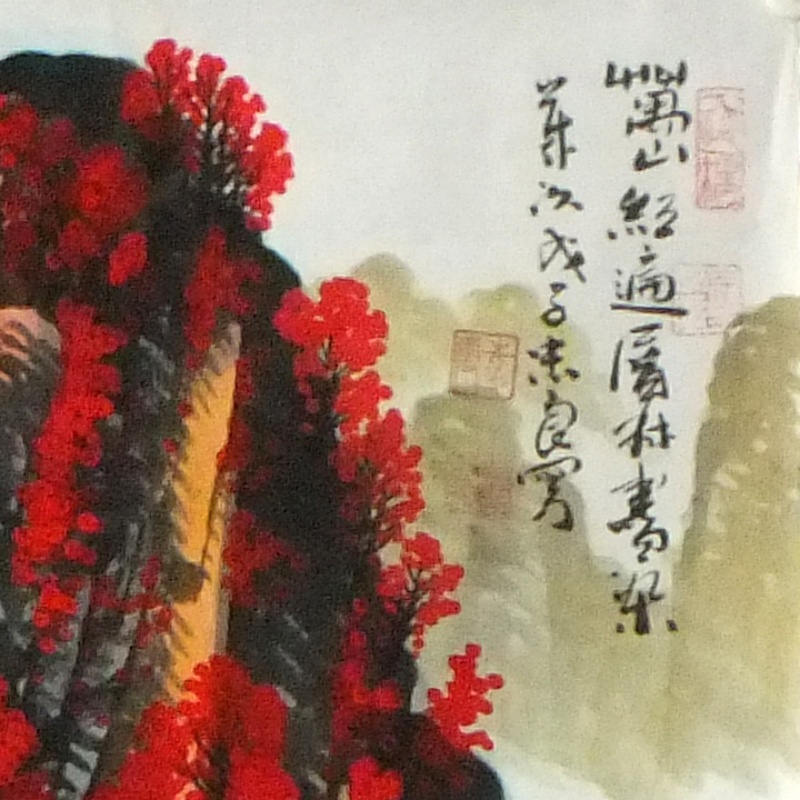 萬山紅遍層林盡染
歲次戊子忠良寫